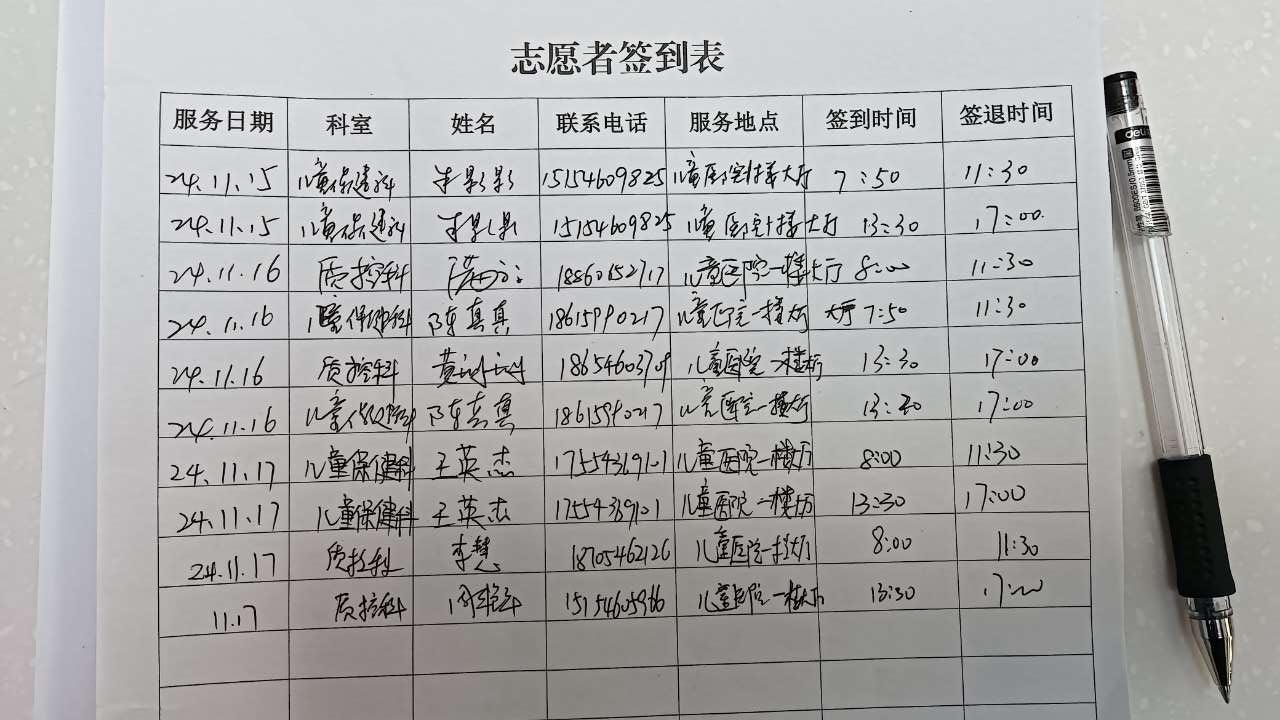 志愿者签到表
服务日期 科室 姓名 联系电话 服务地点 签到时间 签退时间
24.11.15 儿童保健科 影影 15154609825 儿童医院1楼大厅 7:50 11:30
24.11.15 儿童保健科 15154609825 儿童医院1楼大厅 13:30 17:00
24.11.16 质控科 18860152717 儿童医院一楼大厅 8:00 11:30
24.11.16 儿童保健科 陈真真 18615990217 儿童医院一楼大厅 大厅 7:50 11:30
24.11.16 质控科 黄 18654603709 儿童医院一楼大厅 13:30 17:00
24.11.16 儿童保健科 陈真真 18615990217 儿童医院一楼大厅 13:30 17:00
24.11.17 儿童保健科 王英杰 儿童医院一楼大厅 8:00 11:30
24.11.17 儿童保健科 王英杰 儿童医院一楼大厅 13:30 17:00
24.11.17 质控科 李慧 18705462126 儿童医院一楼大厅 8:00 11:30
11.17 质控科 15154605966 儿童医院一楼大厅 13:30 17:00
deli